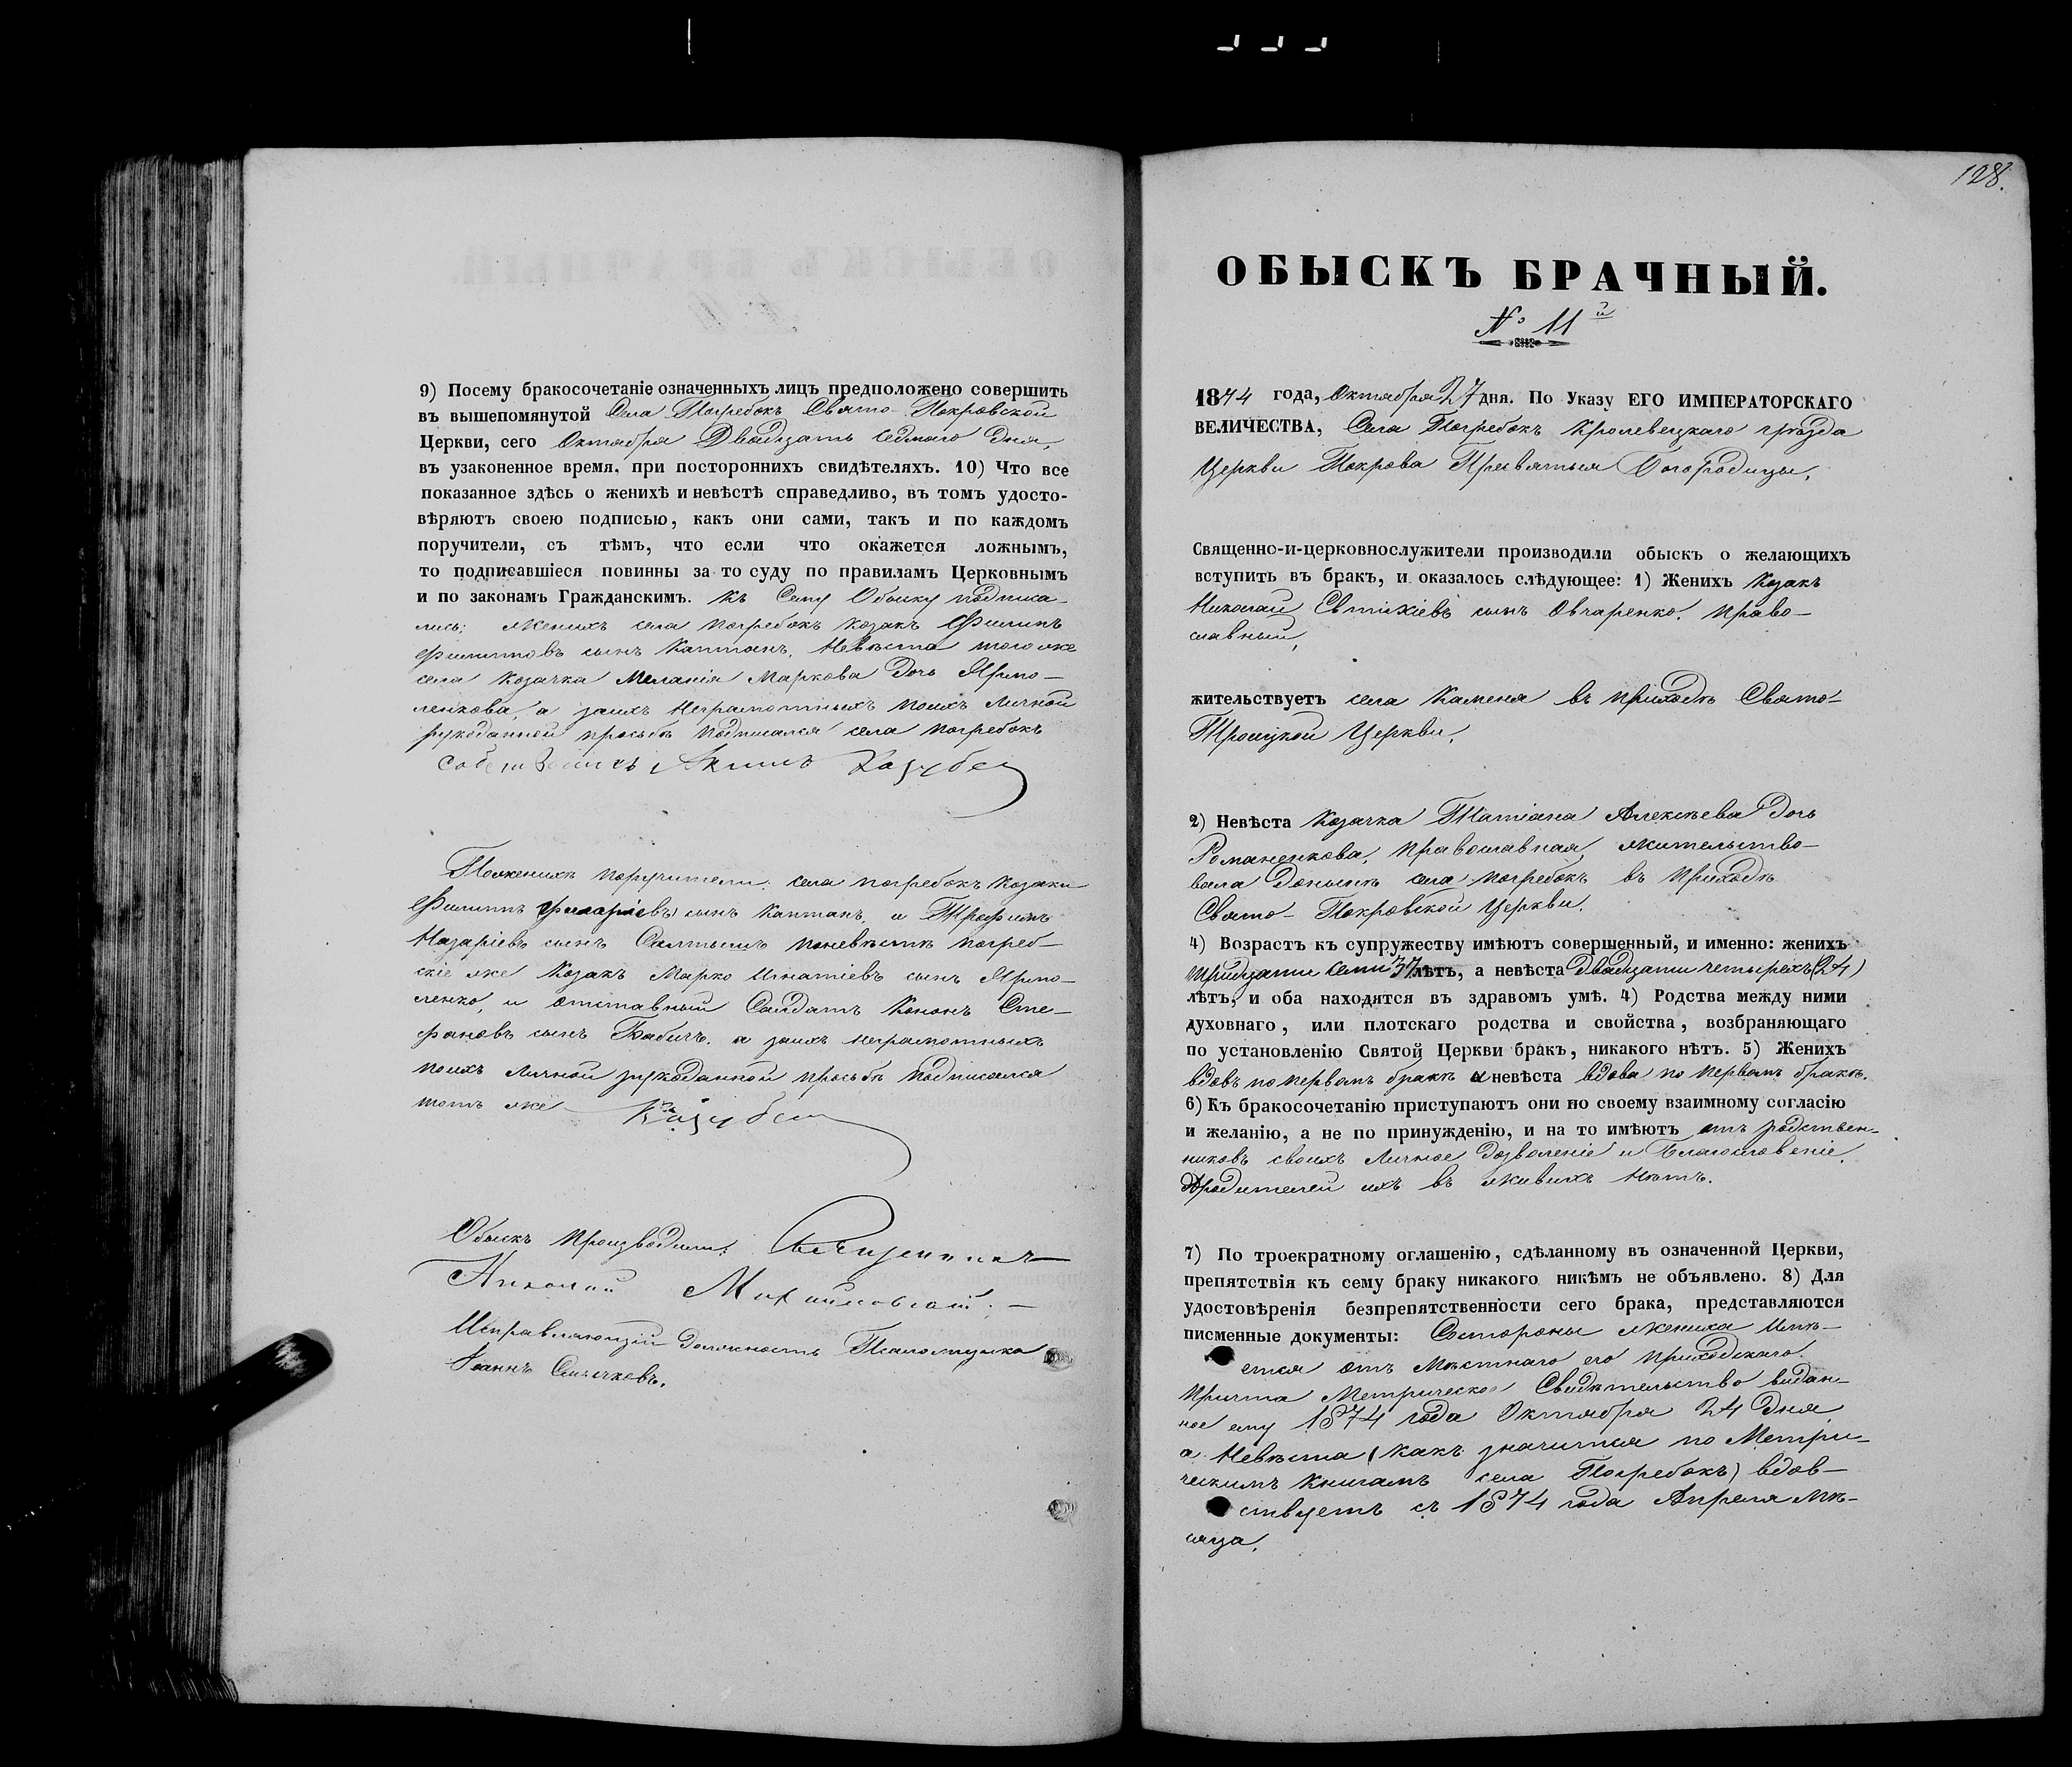 9) Посему бракосочетаніе означенныхъ лицъ предположено совершить
въ вышепомянутой Села Погребокъ Свято-Покровской
Церкви, сего Октября Двадцать седмаго дня,
въ узаконенное время, при постороннихъ свидѣтеляхъ. 10) Что все
показанное здѣсь о женихѣ и невѣстѣ справедливо, въ томъ удосто-
вѣряютъ своею подписью, какъ они сами, такъ и по каждомъ
поручители, съ тѣмъ, что если что окажется ложнымъ,
то подписавшіеся повинны за то суду по правиламъ Церковнымъ
и по законамъ Гражданскимъ. Къ Сему Обыску подписа-
лись: женихъ села погребокъ козакъ Филипъ
Филиповъ сынъ Каптанъ. Невѣста того же
села козачка Меланія Маркова дочь Ярмо-
ленкова, а заихъ неграмотныхъ поихъ личной
рукоданной просьбѣ подписался села погребокъ
Акимъ Казубей
Поженихѣ поручители: села погребокъ козаки
Филипъ сынъ Каптанъ, и Трофимъ
Назаріевъ сынъ Салтышъ поневѣстѣ погреб-
скіе же Козакъ Марко Игнатіевъ сынъ Ярмо-
ленко, и отставный Салдатъ Кононъ Сте-
фановъ сынъ Бабичъ. а заихъ неграмотныхъ
поихъ личной рукоданной просьбѣ подписался
тотъ же Казубей
Обыскъ производили: Священникъ
Николай
Исправляющій должность Псаломщика
Іоаннъ
128.
ОБЫСКЪ БРАЧНЫЙ.
№ 11й
1874 года, Октября 27 дня. По Указу ЕГО ИМПЕРАТОРСКАГО
ВЕЛИЧЕСТВА, Села Погребокъ Кролевецкаго уѣзда
Церкви Покрова Пресвятыя Богородицы,
Священно-и-церковнослужители производили обыскъ о желающихъ
вступить въ бракъ, и оказалось слѣдующее: 1) Женихъ Козакъ
Николай Евтихіевъ сынъ Овчаренко. право-
славный,
жительствуетъ села Каменя въ приходѣ Свято-
Троицкой Церкви,
2) Невѣста Козачка Татіана Алексѣева дочь
Романенкова, православная, жительство-
вала донынѣ села погребокъ въ приходѣ
Свято-Покровской Церкви.
4) Возрастъ къ супружеству имѣютъ совершенный, и именно: женихъ
тридцати семи 37 лѣтъ, а невѣста двадцати четырехъ (24)
лѣтъ, и оба находятся въ здравомъ умѣ. 4) Родства между ними
духовнаго, или плотскаго родства и свойства, возбраняющаго
по установленію Святой Церкви бракъ, никакого нѣтъ. 5) Женихъ
вдовъ по первомъ бракѣ а невѣста вдова по первомъ бракѣ.
6) Къ бракосочетанію приступаютъ они по своему взаимному согласію
и желанію, а не по принужденію, и на то имѣютъ отъ родствен-
никовъ своихъ личное дозволеніе и благословеніе.
родителей ихъ въ живыхъ нѣтъ.
7) По троекратному оглашенію, сдѣланному въ означенной Церкви,
препятствія къ сему браку никакого никѣмъ не объявлено. 8) Для
удостовѣренія безпрепятственности сего брака, представляются
писменные документы: Состороны жениха имѣ-
ется отъ мѣстнаго его приходскаго
причта Метрическое Свидѣтельство видан-
ное ему 1874 года Октября 24 дня,
а Невѣста (какъ значится по Метри-
ческимъ книгамъ села Погребокъ) вдов-
ствуетъ съ 1874 года Апреля мѣ-
сяца.